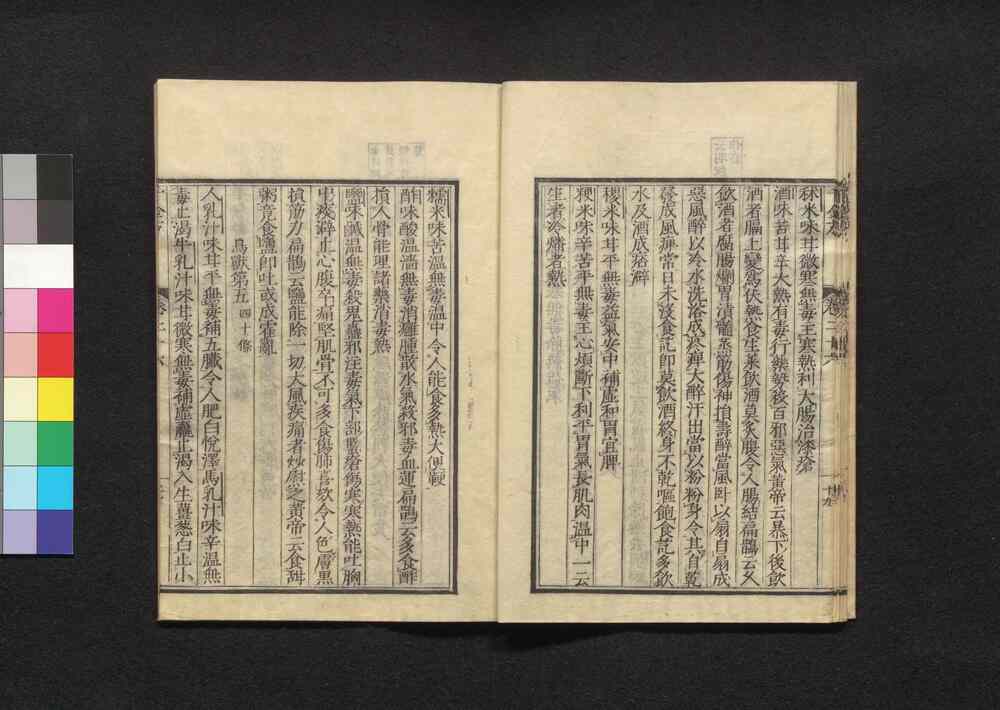 秫米味甘微寒無毒主寒熱利大腸治漆瘡
酒味苦甘辛大熱有毒行藥勢殺百邪惡氣黃帝云暴下後飲
酒者膈上變爲伏熱食生菜飲酒莫炙腹令人腸結扁鵲云久
飲酒者腐腸爛胃潰髓蒸筋傷神損壽醉當風臥以扇自扇成
惡風醉以冷水洗浴成疼痺大醉汗出當以粉粉身令其自乾
發成風痺常日未沒食訖即莫飲酒終身不乾嘔飽食訖多飲
水及酒成痞澼
稷米味甘平無毒益氣安中補虛和胃宜脾
粳米味辛苦平無毒主心煩斷下利平胃氣長肌肉溫中一云
生者冷燔者熱
糯米味苦溫無毒溫中令人能食多熱大便鞕
酢味酸溫濇無毒消癰腫散水氣殺邪毒血運扁鵲云多食酢
損人骨能理諸藥消毒熱
鹽味鹹溫無毒殺鬼蠱邪注毒氣下部䘌瘡傷寒寒熱能吐胸
中痰澼止心腹卒痛堅肌骨不可多食傷肺喜欬令人色膚黑
損筋力扁鵲云鹽能除一切大風疾痛者炒熨之黃帝云食甜
粥竟食鹽即吐或成霍亂
鳥獸第五 四十條
人乳汁味甘平無毒補五臟令人肥白悅澤馬乳汁味辛溫無
毒止渴牛乳汁味甘微寒無毒補虛羸止渴入生薑葱白止小